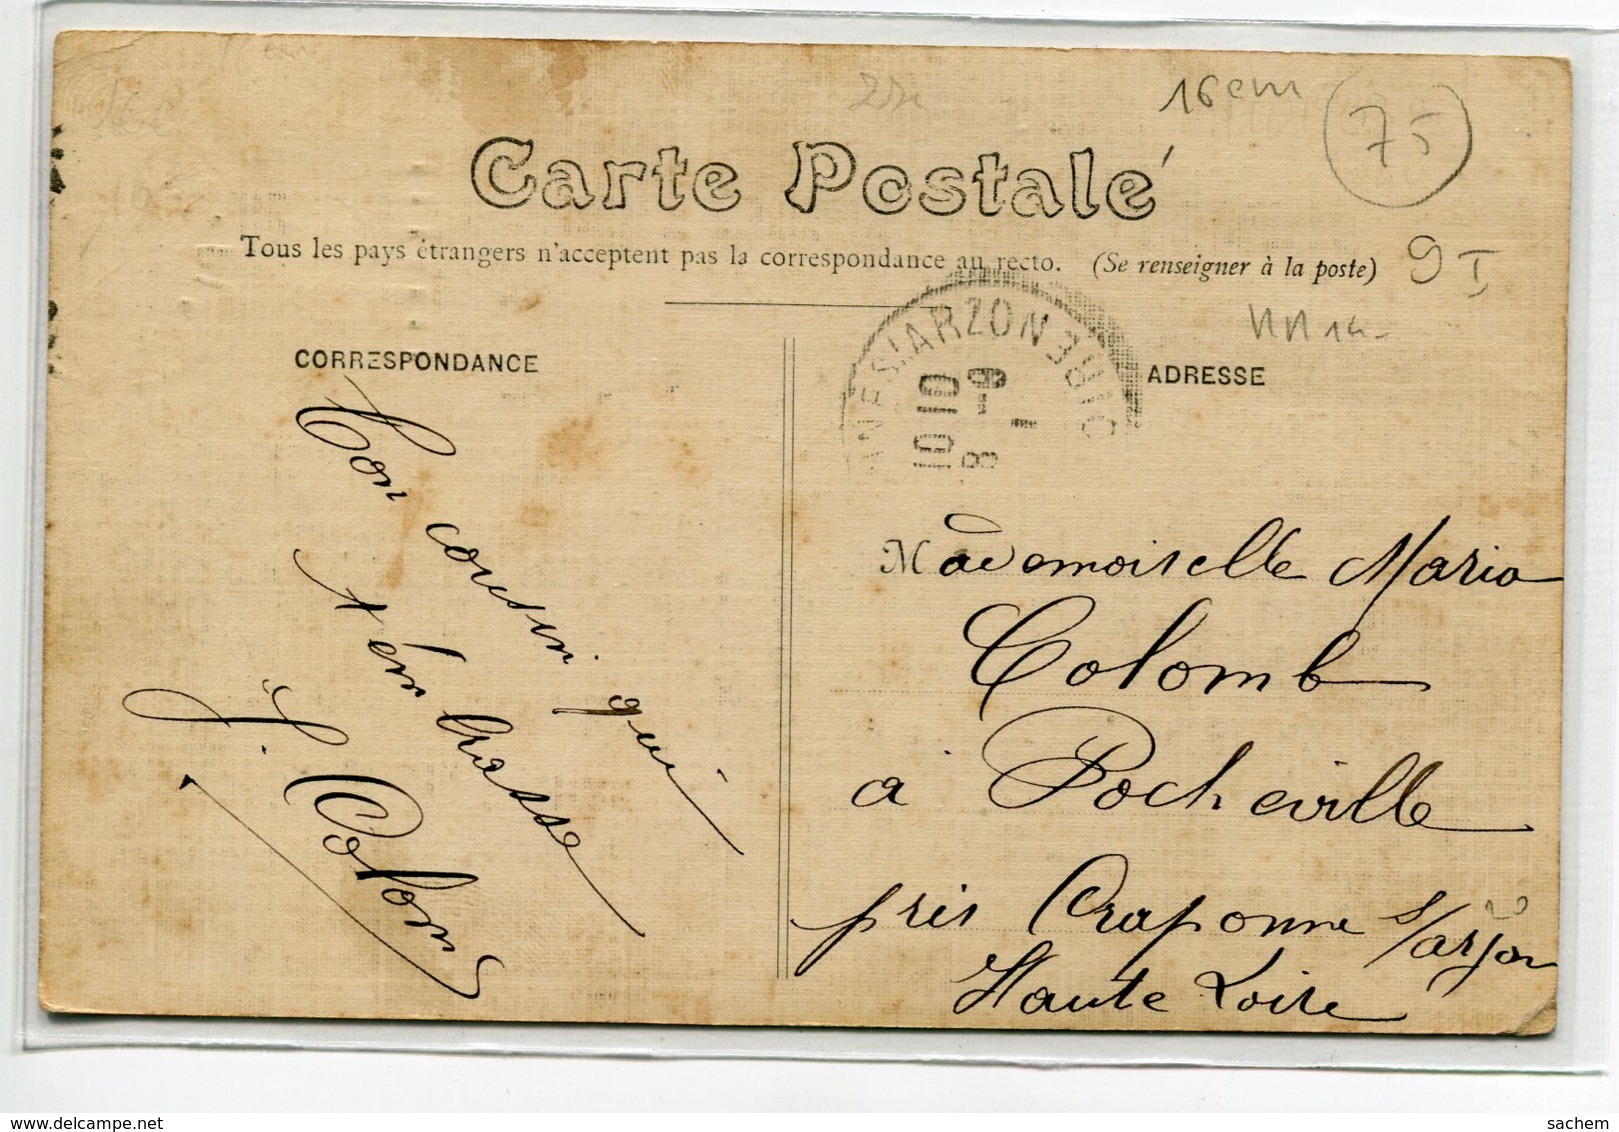 16 em
75
Carte Postale
Tous les pays étrangers n'acceptent pas la correspondance au recto. (Se renseigner à la poste)
9 I
CORRESPONDANCE
ADRESSE
S/ARZON
LOIRE
10 10
8 - 9
1
Ton cousin qui
t'émbrasse
J. Colomb
Mademoiselle Maria
Colomb
a Pocheville
près Craponne s/arzon
Haute Loire
sachem